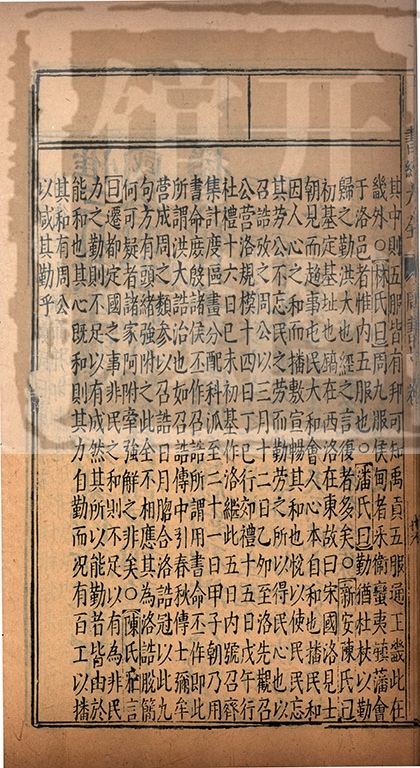 其中則五服皆有邦可知禹貢五服通王畿此在
畿外○林氏曰周九服侯甸男采衛蠻夷鎮藩會
于洛邑者惟内五服也○潘氏曰勤猶杕杜以勤
歸之勤洪大也經之言復者多矣○新安陳氏曰
初基定基址也鎬在西洛在東故曰東國洛見士
朝見而趨事也民大和會人心本自和也播民和
因人心之和而播敷宣暢其和也悅以使民民忘
其勞公不忘民之勞而勤勞之所以得民心也以
召誥攷之周公以三月十二日乙卯至洛先觀召
公營洛規模十四日丁巳行郊禮十五日戊午行
社禮十六日己未初基作洛繼此五日内號召齊
集計度區畫分配科派至二十一日甲子朝乃用
書命庶殷諸侯丕作召誥所謂用書命丕作即此
所謂洪大誥治也如召誥傳中引春秋傳士彌牟
營成周之類參以召誥日月脗合洛誥冠以此九
句方有頭緒強附之此全不相應其為洛誥脫簡
何可疑者諸家阿附牽強解之非矣○陳氏雅言
曰遷都定國之事非民之和則不足以有為非民
力之勤則不足以有成然其所以能勤者皆由於
能和也其心既和則其力自勤而况有百工以播
其和有周公
以咸其勤乎